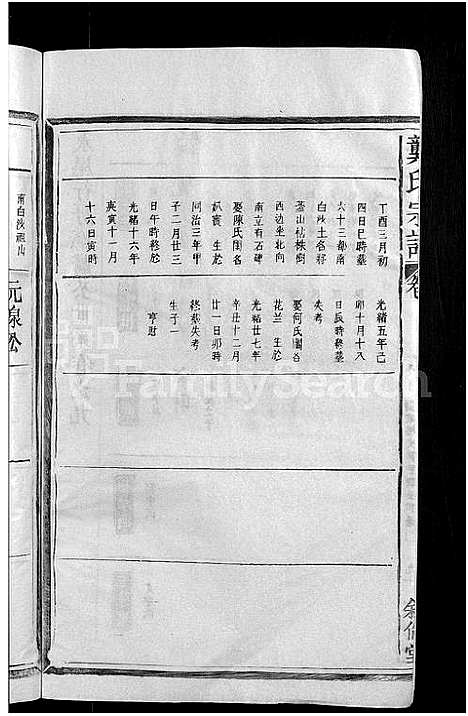 龔氏宗譜
卷
敘倫堂
丁酉三月初
四日巳時墓
六十三都南
白汝土名將
荃山枯株樹
西边坐北向
南立有石碑
娶陳氏閨名
訊賓 生於
同治三年甲
子二月廿三
日午時終於
光緒十六年
庚寅十一月
十六日寅時
光緒五年己
卯十月十八
日辰時終墓
失考
娶何氏閨名
花兰 生於
光緒廿七年
辛丑十二月
廿一日卯時
終葬失考
生子一
亨尉
南白汝祖山
元線公
FamilySearch